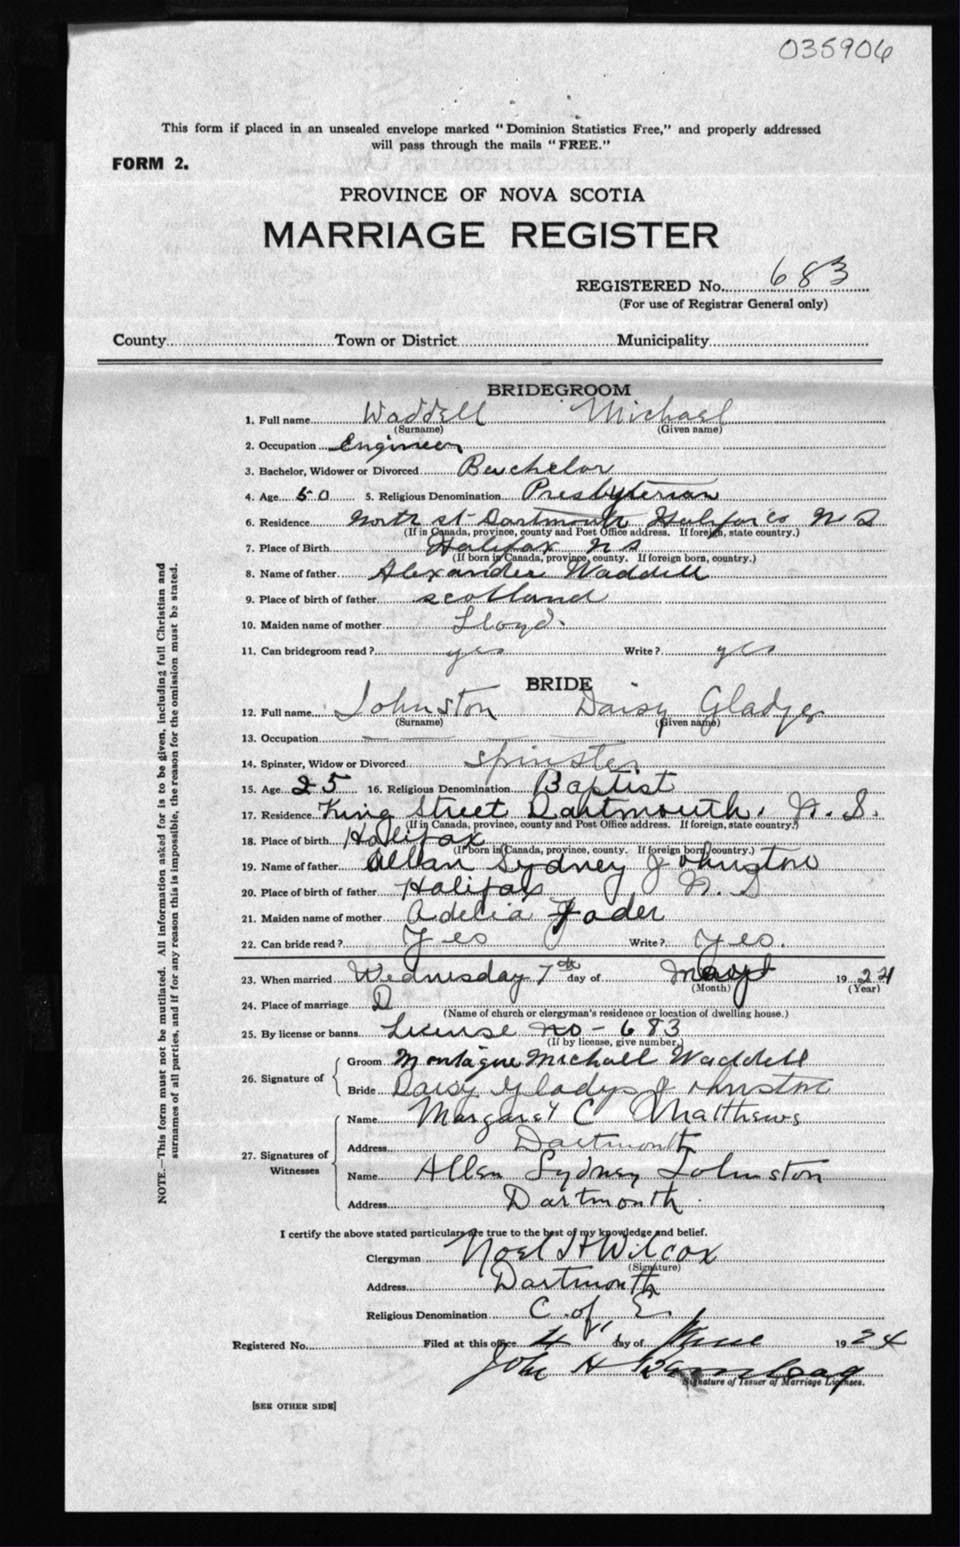 035906
This form if placed in an unsealed envelope marked "Dominion Statistics Free," and properly addressed
will pass through the mails "FREE."
FORM 2.
PROVINCE OF NOVA SCOTIA
MARRIAGE REGISTER
REGISTERED No. 683
(For use of Registrar General only)
County Town or District Municipality
BRIDEGROOM
1. Full name Waddell Michael
(Surname) (Given name)
2. Occupation Engineer
3. Bachelor, Widower or Divorced Bachelor
4. Age 50 5. Religious Denomination Presbyterian
6. Residence North st Dartmouth Halifax Co N S
(If in Canada, province, county and Post Office address. If foreign, state country.)
7. Place of Birth Halifax N S
(If born in Canada, province, county. If foreign born, country.)
8. Name of father Alexander Waddell
9. Place of birth of father Scotland
10. Maiden name of mother Lloyd.
11. Can bridegroom read? yes Write? yes
BRIDE
12. Full name Johnston Daisy Gladys
(Surname) (Given name)
13. Occupation
14. Spinster, Widow or Divorced Spinster
15. Age 25 16. Religious Denomination Baptist
17. Residence King Street Dartmouth. N. S.
(If in Canada, province, county and Post Office address. If foreign, state country.)
18. Place of birth Halifax
(If born in Canada, province, county. If foreign born, country.)
19. Name of father Allan Sydney Johnston
20. Place of birth of father Halifax N. S
21. Maiden name of mother Adelia Fader
22. Can bride read? Yes Write? Yes.
23. When married Wednesday 7th day of May 1924
(Month) (Year)
24. Place of marriage D
(Name of church or clergyman's residence or location of dwelling house.)
25. By license or banns License No - 683
(If by license, give number.)
26. Signature of Groom Montague Michael Waddell
Bride Daisy Gladys Johnston
27. Signatures of Witnesses
Name Margaret C Matthews
Address Dartmouth
Name Allen Sydney Johnston
Address Dartmouth.
I certify the above stated particulars are true to the best of my knowledge and belief.
Clergyman Noel H Wilcox
(Signature)
Address Dartmouth
Religious Denomination C. of E.
Registered No. Filed at this office 4 day of June 1924
John H
Signature of Issuer of Marriage Licenses.
[SEE OTHER SIDE]
NOTE.—This form must not be mutilated. All information asked for is to be given, including full Christian and
surnames of all parties, and if for any reason this is impossible, the reason for the omission must be stated.